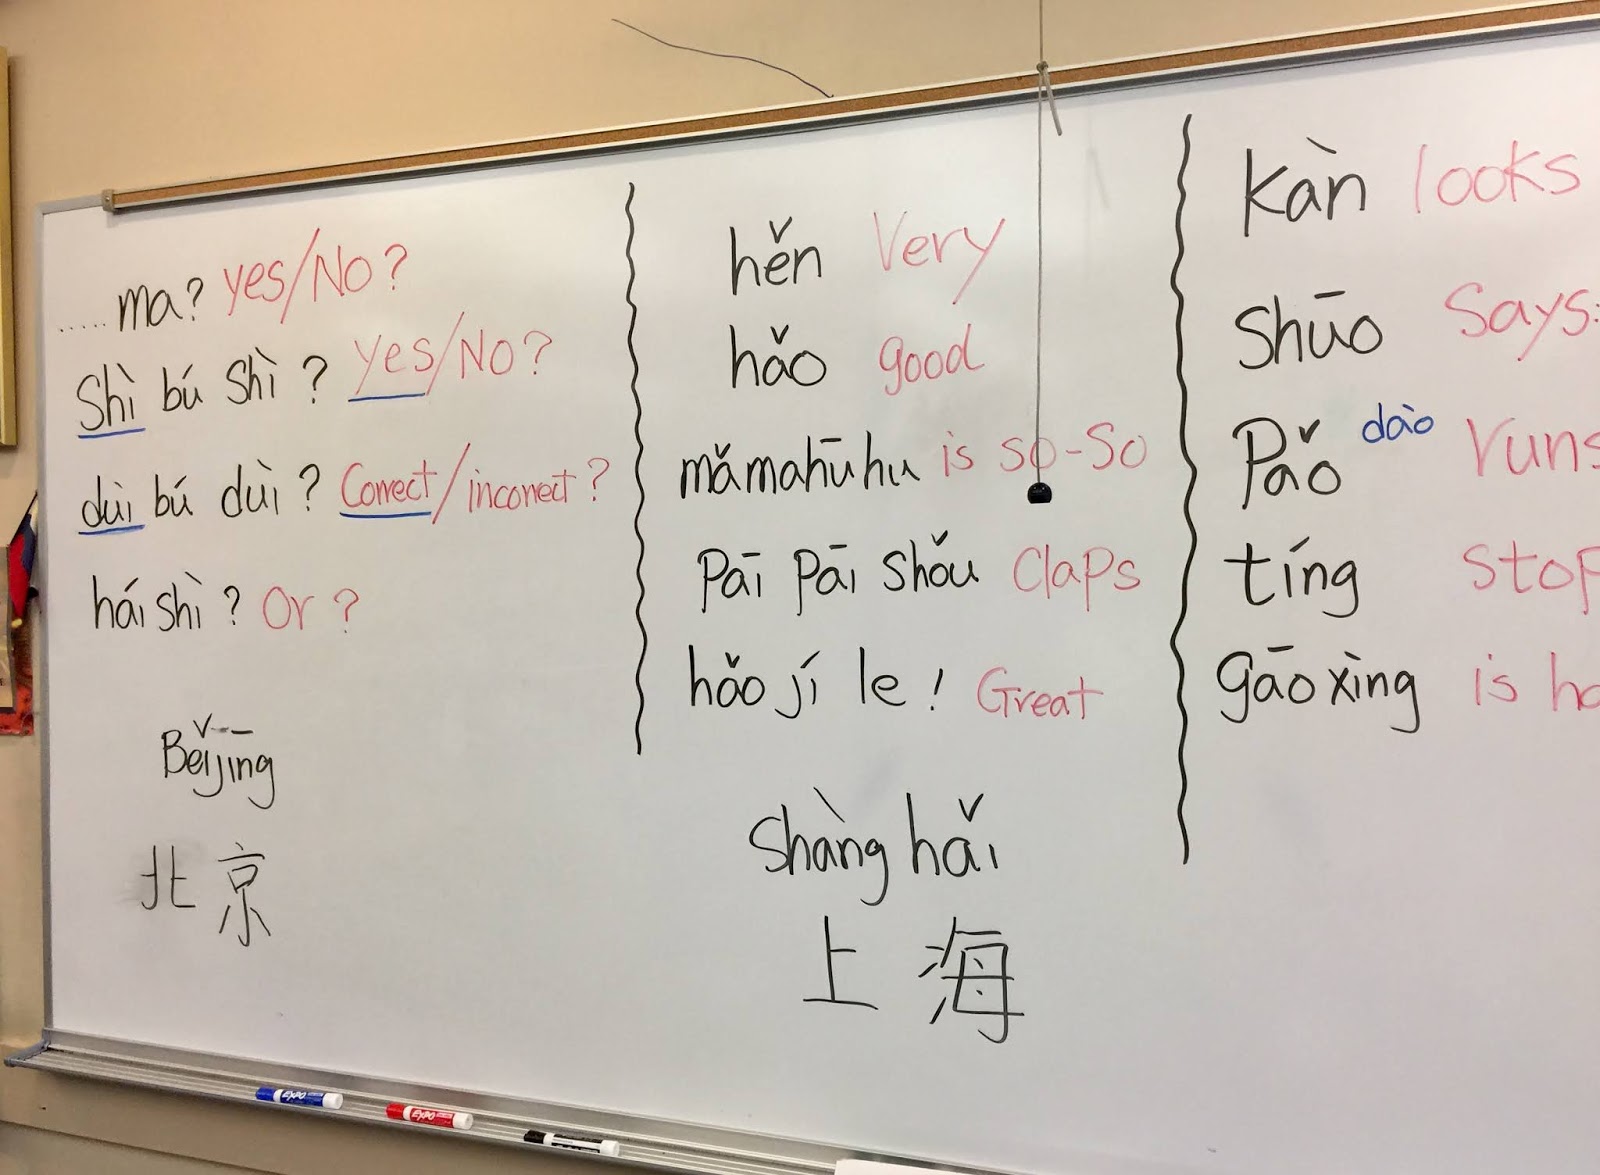 ..... ma? yes/No?
Shì bú Shì ? yes/No?
duì bú duì ? Correct/incorrect?
háishì ? Or ?
Běijīng
北京
hěn Very
hǎo good
mǎmahūhu is so-So
Pāi Pāi Shǒu Claps
hǎo jí le ! Great
Shàng hǎi
上海
Kàn looks
Shūo Says:
Pǎo dào runs
tíng stop
gāoxìng is ha
EXPO
EXPO